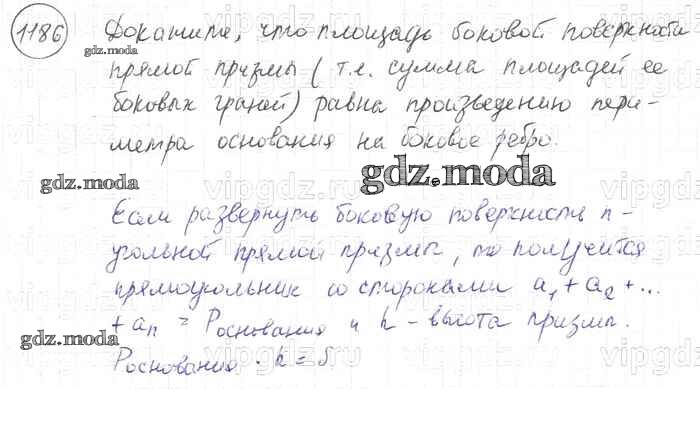 1186 Докажите, что площадь боковой поверхности
gdz.moda
прямой призмы (т.е. сумма площадей ее
боковых граней) равна произведению пери-
метра основания на боковое ребро.
gdz.moda
gdz.moda
vipgdz.ru
Если развернуть боковую поверхность n-
угольной прямой призмы, то получится
прямоугольник со сторонами a₁ + a₂ + ...
+ aₙ = Pоснования и h - высота призмы.
gdz.moda
Pоснования · h = S